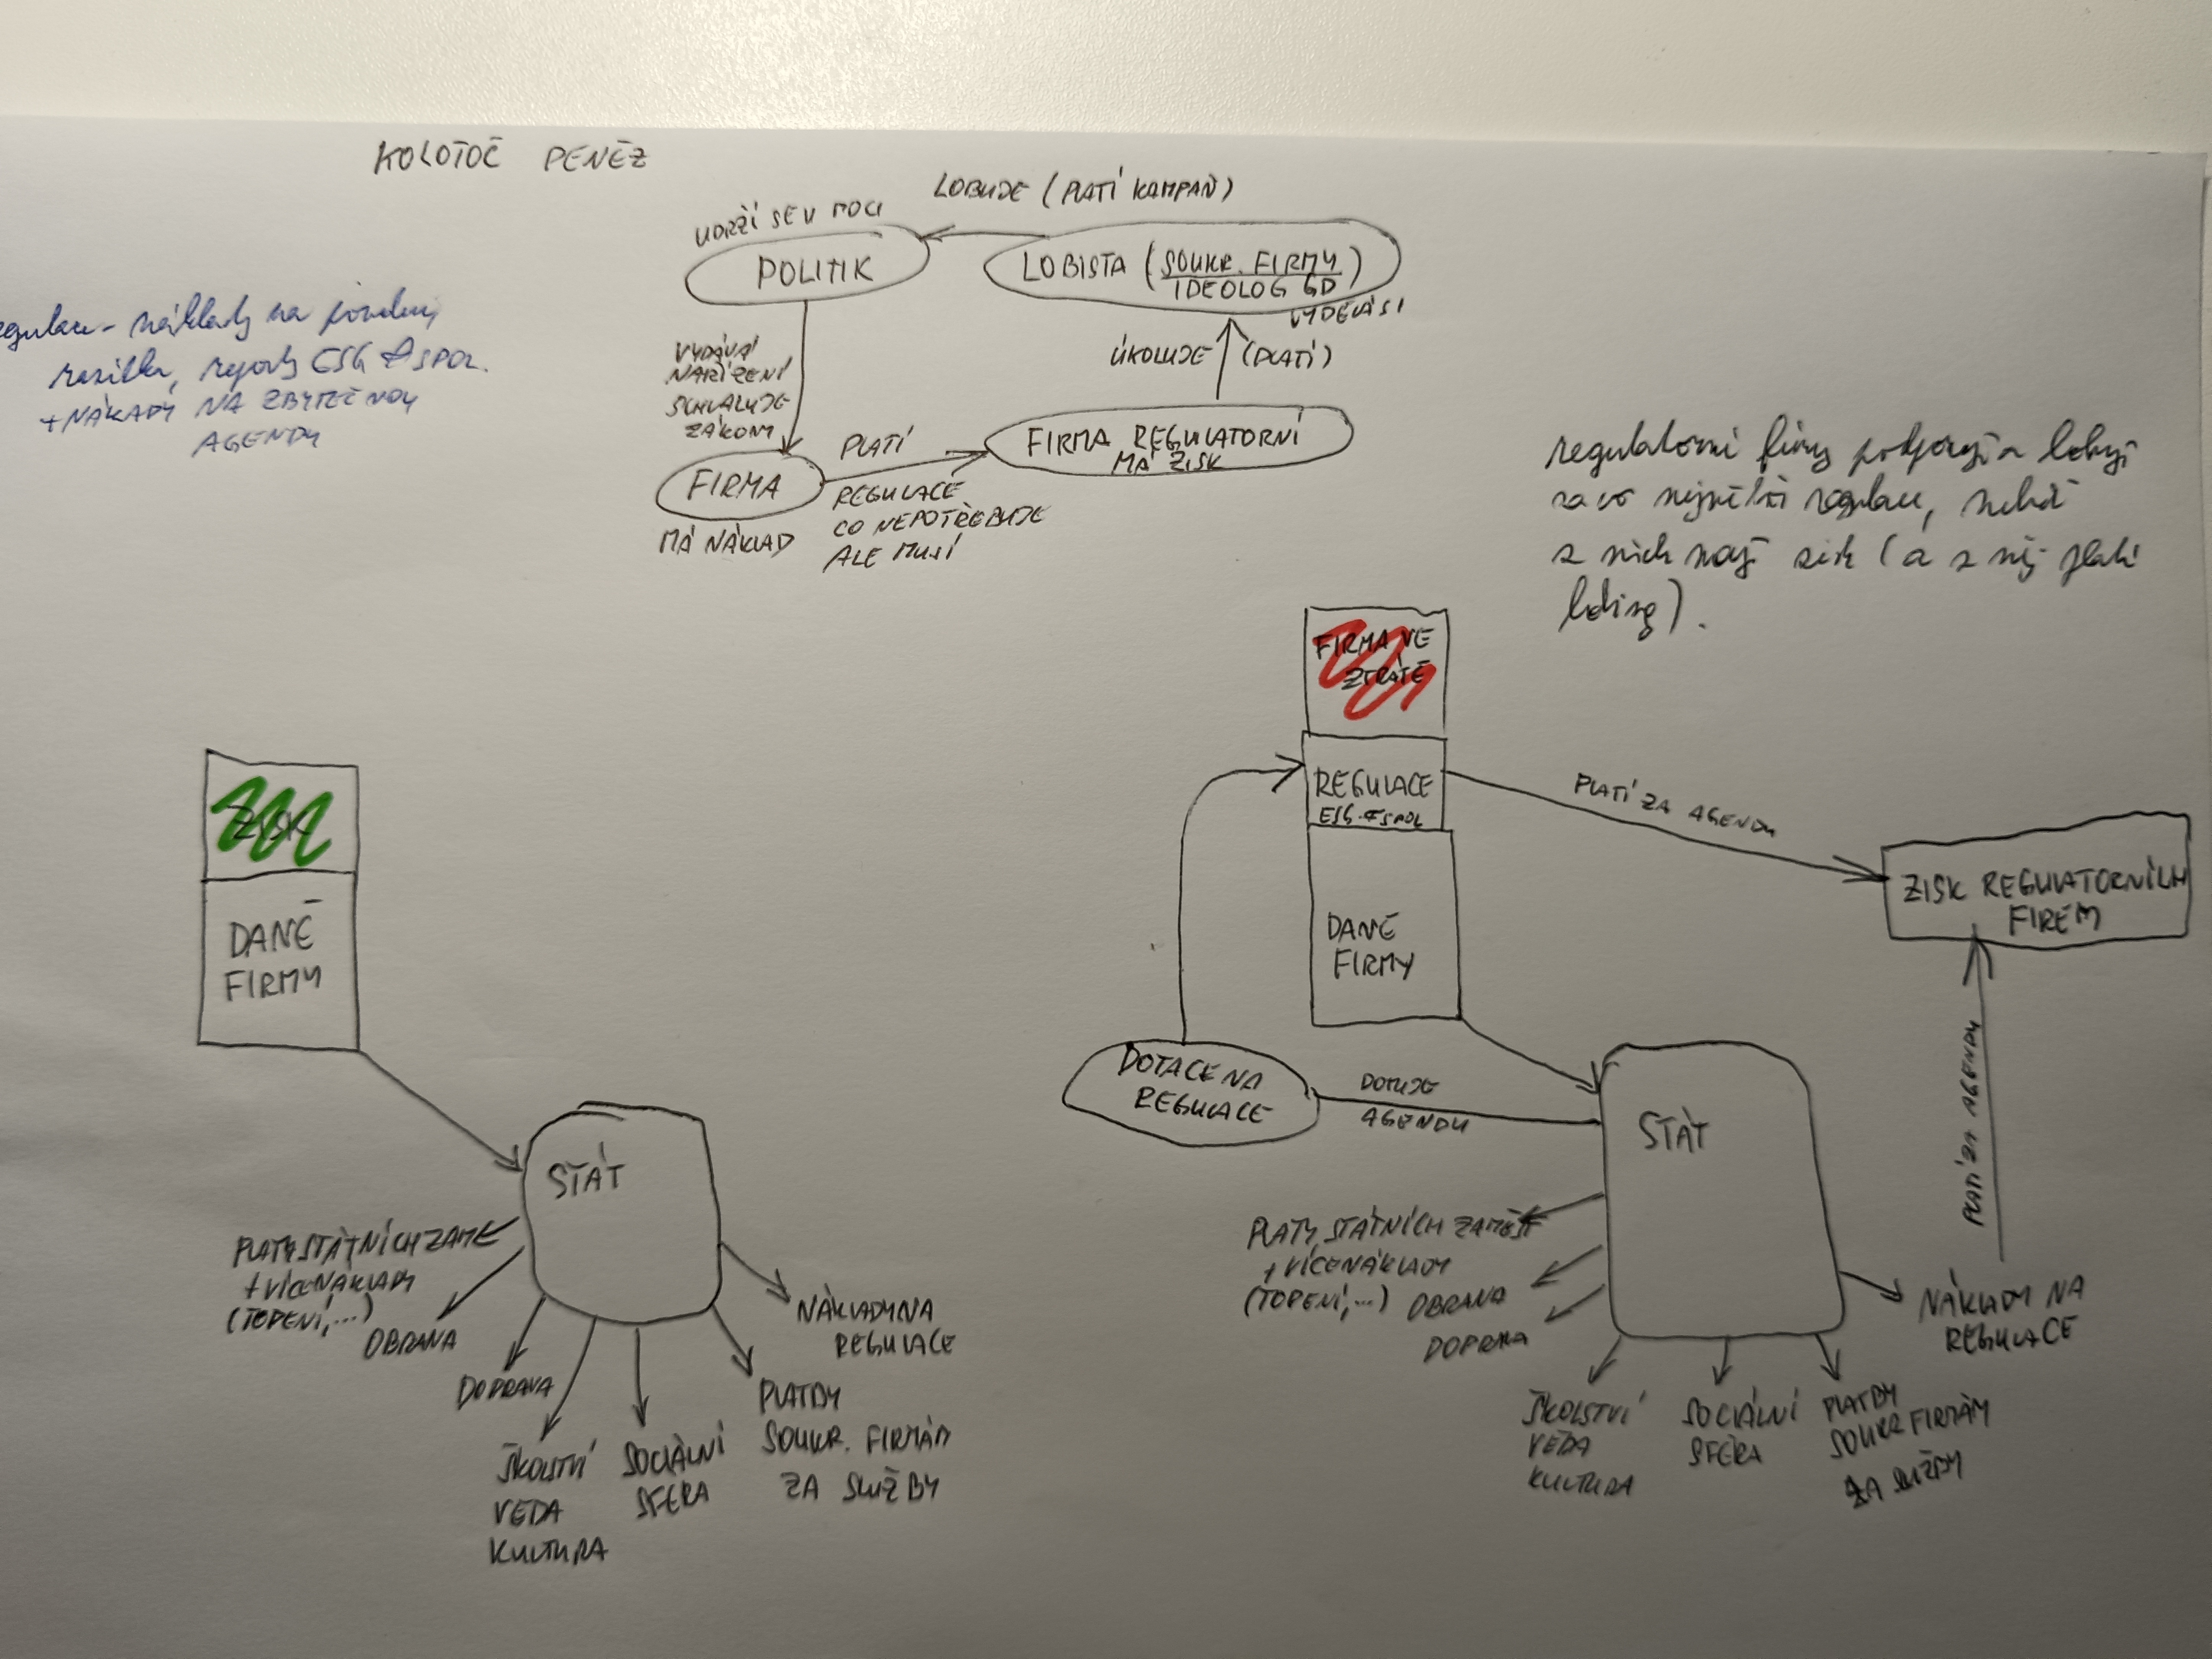 KOLOTOČ PENĚZ
LOBUJE (PLATÍ KAMPAŇ)
UDRŽÍ SE V MOCI
POLITIK
LOBISTA (SOUKR. FIRMY
IDEOLOG GD)
VYDĚLÁSI
VYDÁVÁ
NAŘÍZENÍ
SCHVALUJE
ZÁKONY
ÚKOLUJE (PLATÍ)
FIRMA
MÁ NÁKLAD
PLATÍ
REGULACE
CO NEPOTŘEBUJE
ALE MUSÍ
FIRMA REGULATORNÍ
MÁ ZISK
náklady na
razítka, reporty ESG & SPOL.
+ NÁKLADY NA ZBYTEČNOU
AGENDU
regulatorní firmy podporují a lobují
za co největší regulace, neboť
z nich mají zisk (a z něj platí
lobing).
ZISK
DANĚ
FIRMY
STÁT
PLATY STÁTNÍCH ZAMĚ
+ VÍCENÁKLADY
(TOPENÍ,...)
OBRANA
DOPRAVA
ŠKOLSTVÍ
VĚDA
KULTURA
SOCIÁLNÍ
SFÉRA
PLATBY
SOUKR. FIRMÁM
ZA SLUŽBY
NÁKLADY NA
REGULACE
FIRMA VE
ZTRÁTĚ
REGULACE
ESG & SPOL
DANĚ
FIRMY
PLATÍ ZA AGENDU
ZISK REGULATORNÍCH
FIREM
DOTACE NA
REGULACE
DOTUJE
AGENDU
STÁT
PLATÍ ZA AGENDU
PLATY STÁTNÍCH ZAMĚST
+ VÍCENÁKLADY
(TOPENÍ,...)
OBRANA
DOPRAVA
ŠKOLSTVÍ
VĚDA
KULTURA
SOCIÁLNÍ
SFÉRA
PLATBY
SOUKR FIRMÁM
ZA SLUŽBY
NÁKLADY NA
REGULACE